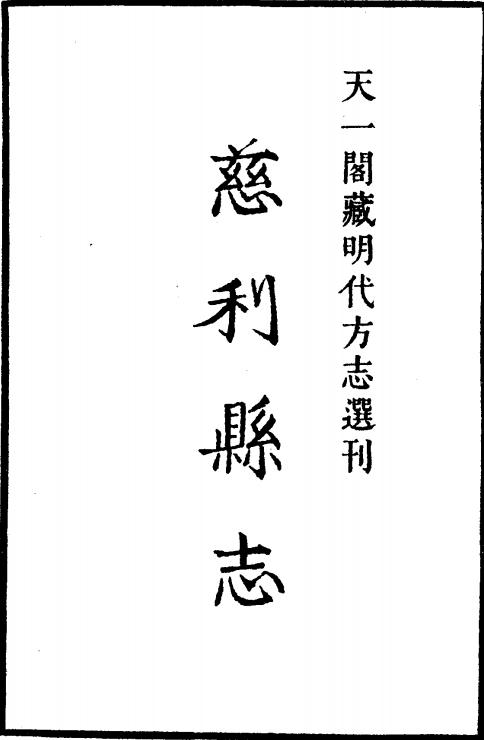 天一閣藏明代方志選刊
慈利縣志